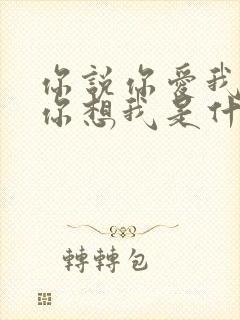 你說你愛我
你想我是什
轉轉包